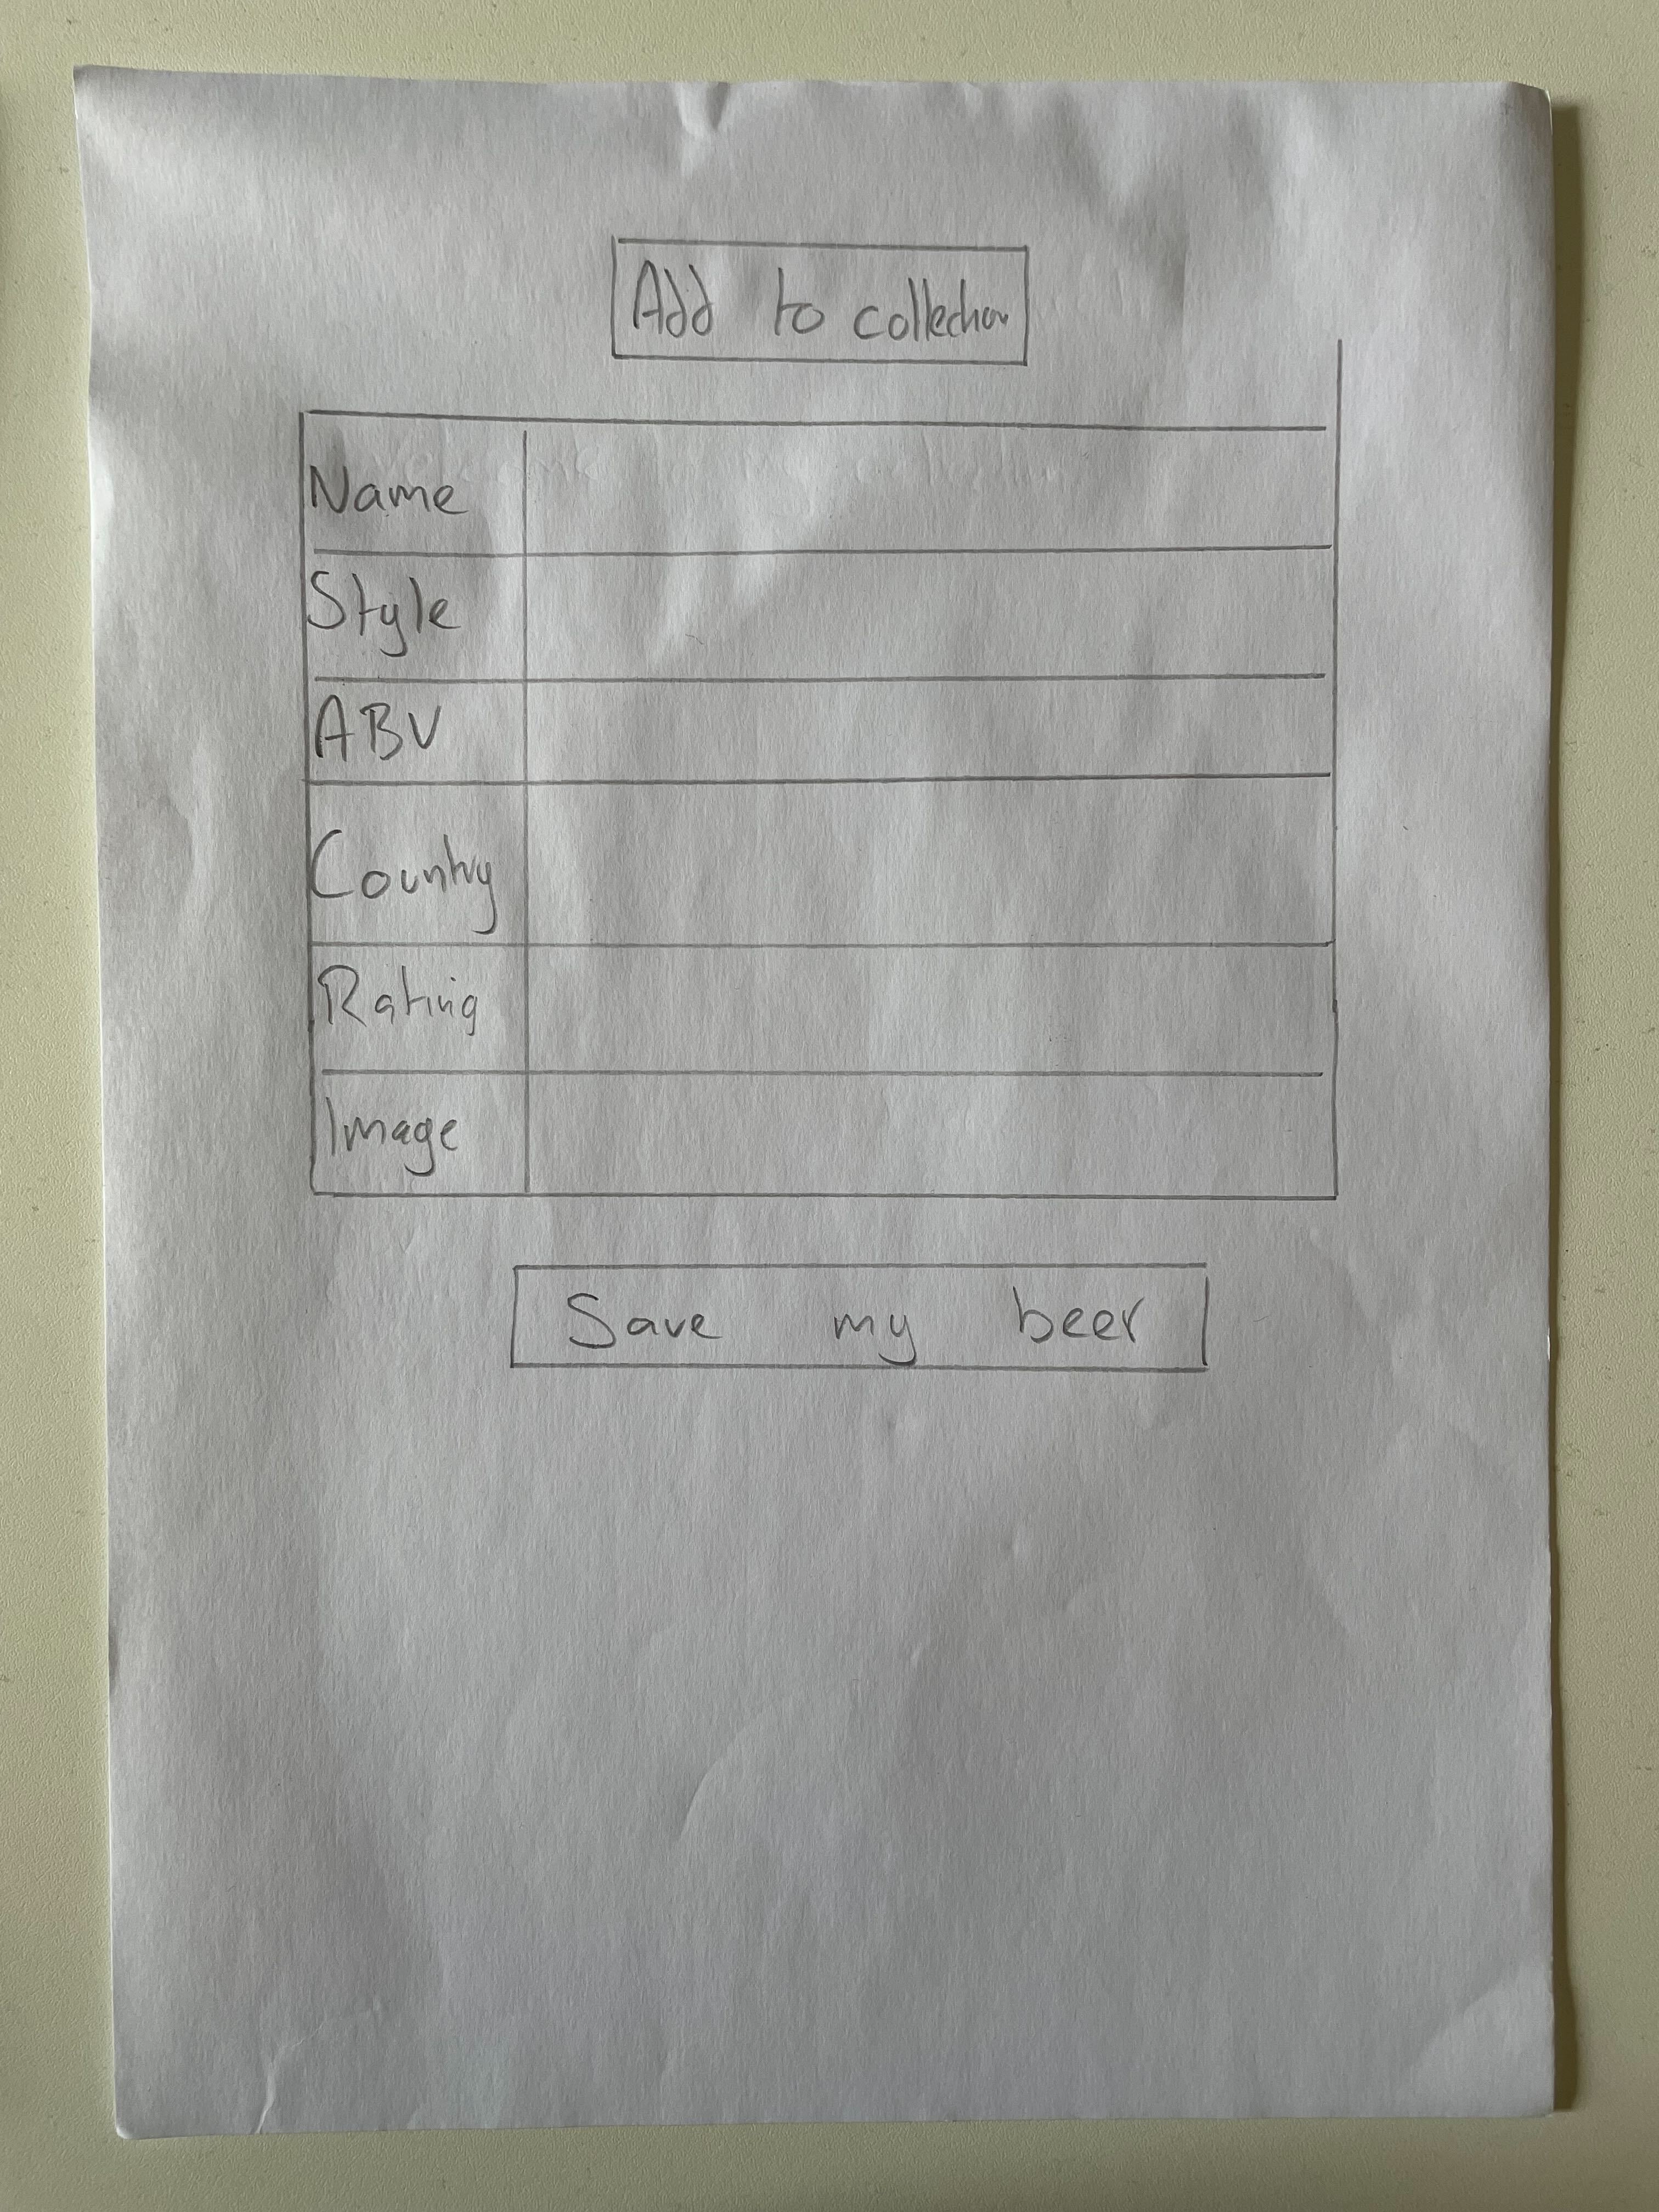 Add to collection
Name
Style
ABV
Country
Rating
Image
Save my beer